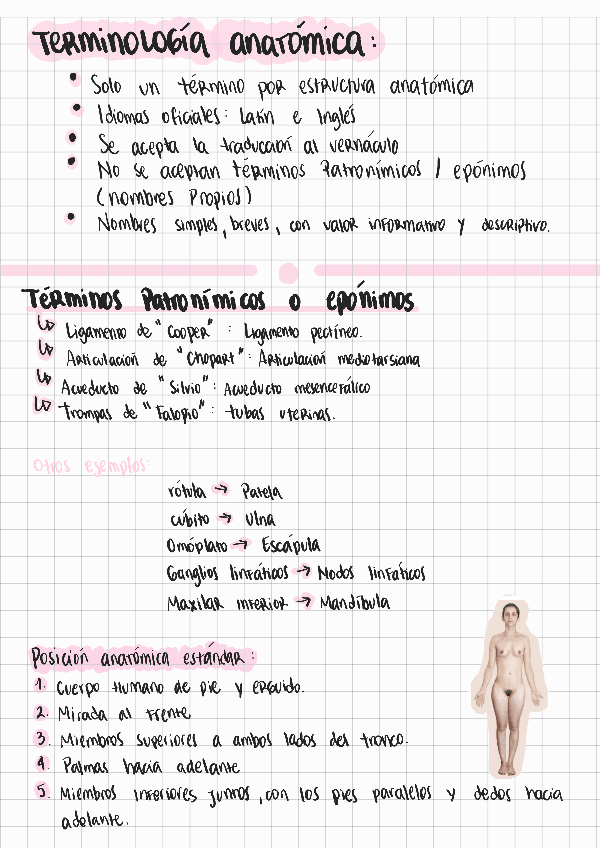 Terminología anatómica:
• Solo un término por estructura anatómica
• Idiomas oficiales: Latín e Inglés
• Se acepta la traducción al vernáculo
• No se aceptan términos Patronímicos / epónimos
(nombres Propios)
• Nombres simples, breves, con valor informativo y descriptivo.
Términos Patronímicos o epónimos
↳ Ligamento de "Cooper": Ligamento pectíneo.
↳ Articulación de "Chopart": Articulación mediotarsiana
↳ Acueducto de "Silvio": Acueducto mesencefálico
↳ Trompas de "Falopio": tubas uterinas.
Otros ejemplos:
rótula → Patela
cúbito → Ulna
Omóplato → Escápula
Ganglios linfáticos → Nodos linfáticos
Maxilar inferior → Mandíbula
Posición anatómica estándar:
1. Cuerpo Humano de pie y erguido.
2. Mirada al frente
3. Miembros superiores a ambos lados del tronco.
4. Palmas hacia adelante
5. Miembros inferiores juntos, con los pies paralelos y dedos hacia
adelante.